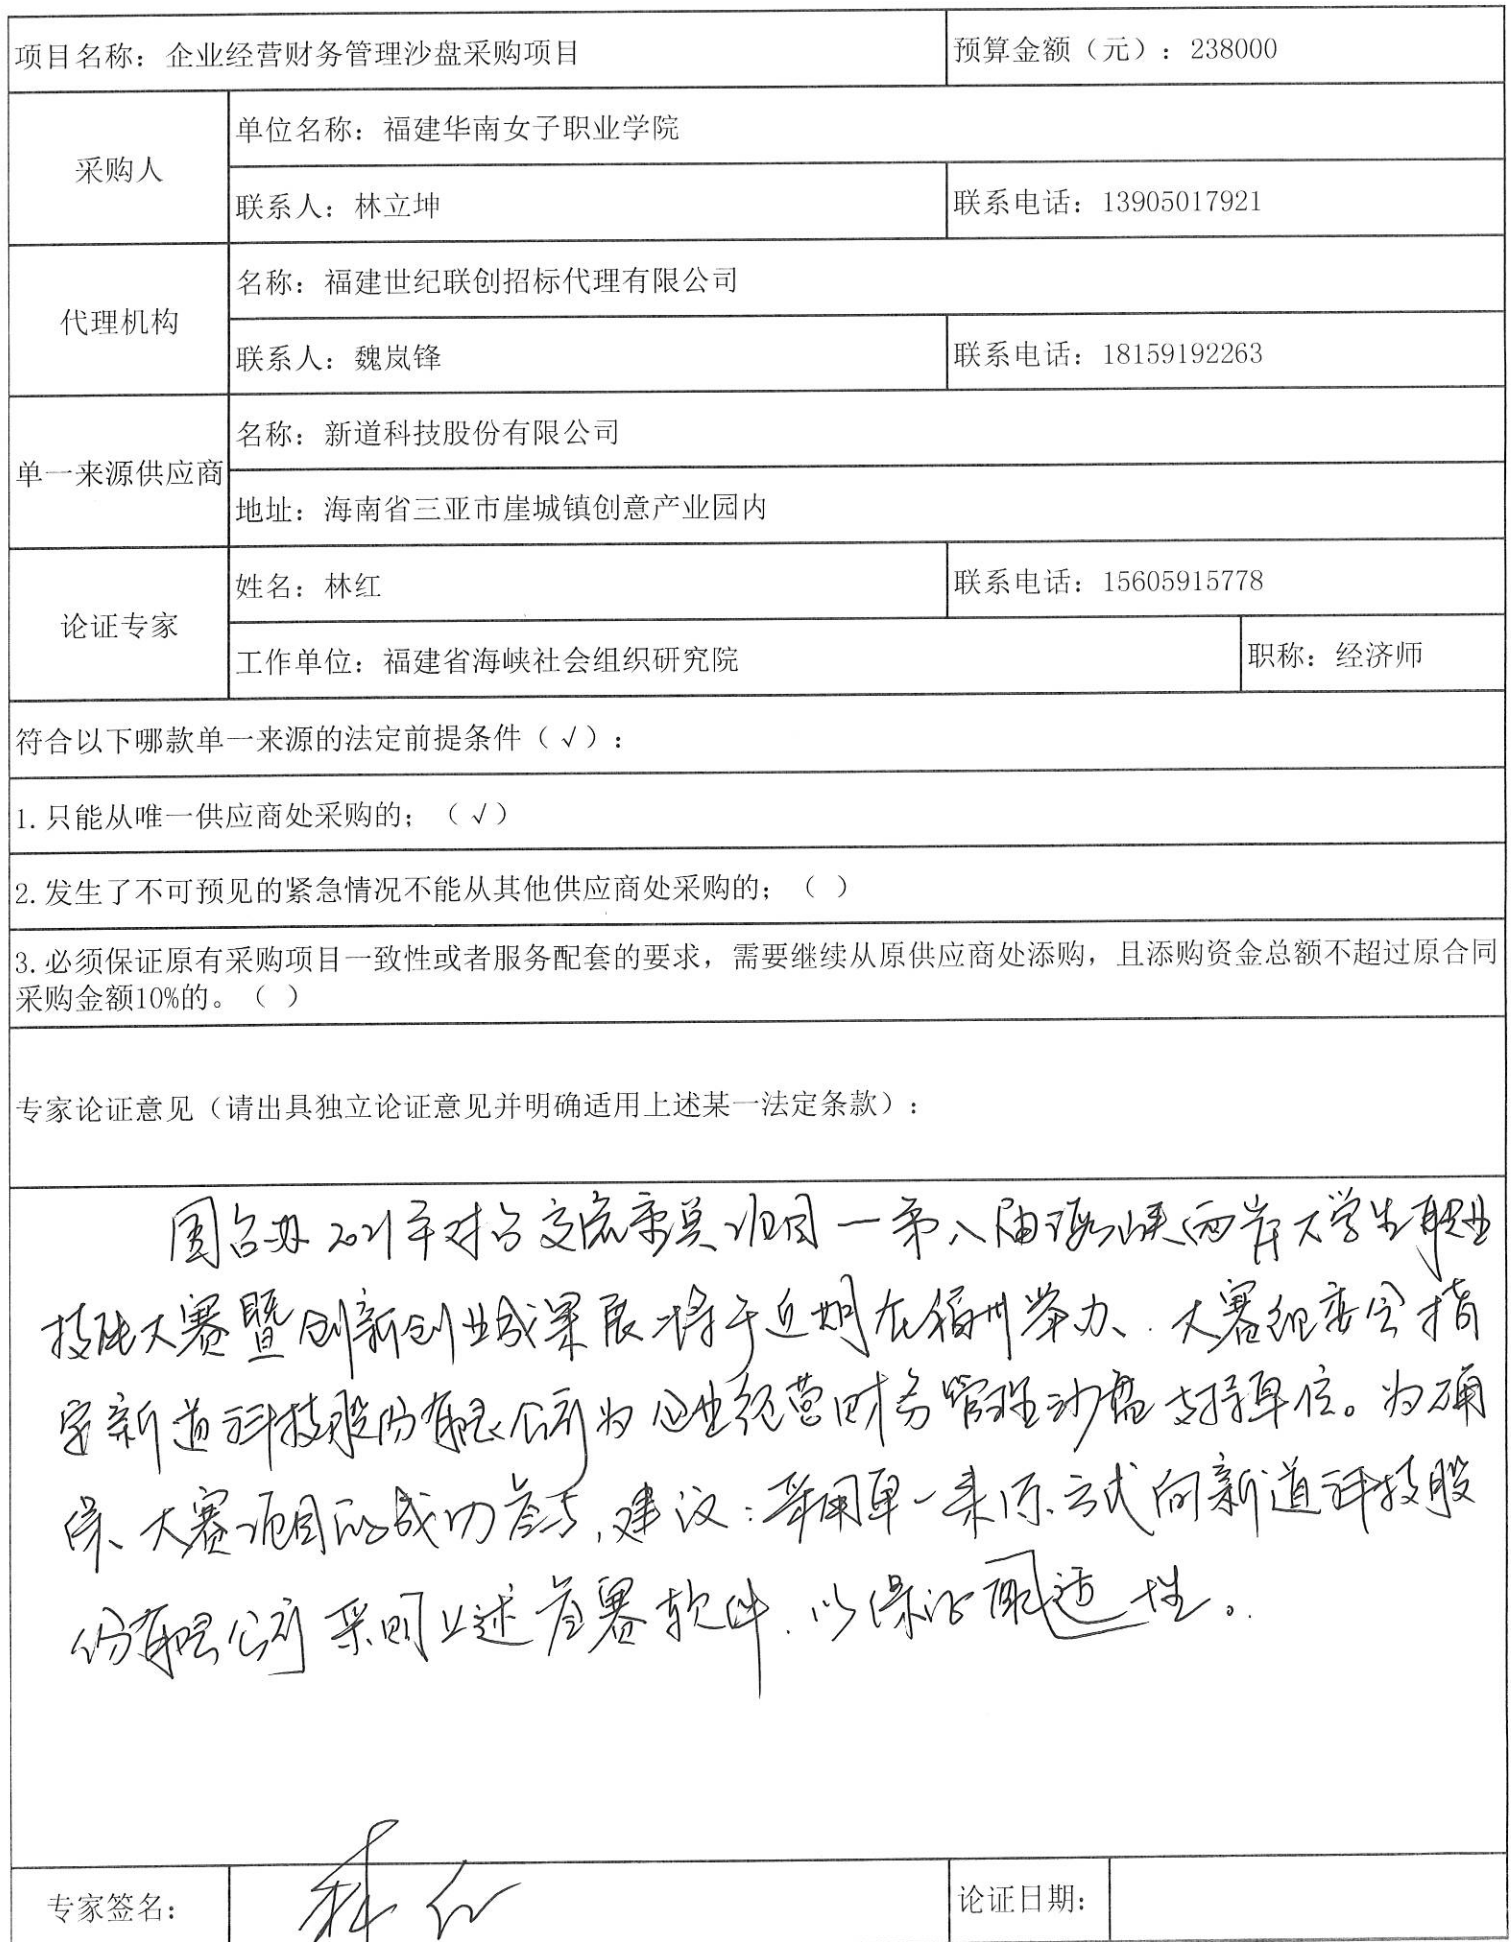 项目名称：企业经营财务管理沙盘采购项目 预算金额（元）：238000
采购人
单位名称：福建华南女子职业学院
联系人：林立坤 联系电话：13905017921
代理机构
名称：福建世纪联创招标代理有限公司
联系人：魏岚锋 联系电话：18159192263
单一来源供应商
名称：新道科技股份有限公司
地址：海南省三亚市崖城镇创意产业园内
论证专家
姓名：林红 联系电话：15605915778
工作单位：福建省海峡社会组织研究院 职称：经济师
符合以下哪款单一来源的法定前提条件（√）：
1.只能从唯一供应商处采购的；（√）
2.发生了不可预见的紧急情况不能从其他供应商处采购的；（ ）
3.必须保证原有采购项目一致性或者服务配套的要求，需要继续从原供应商处添购，且添购资金总额不超过原合同
采购金额10%的。（ ）
专家论证意见（请出具独立论证意见并明确适用上述某一法定条款）：
国台办2021年对台交流重点项目一第八届海峡两岸大学生职业
技能大赛暨创新创业成果展将于近期在福州举办、大赛组委会指
定新道科技股份有限公司为企业经营财务管理沙盘支持单位。为确
保大赛项目的成功参与，建议：采用单一来源方式向新道科技股
份有限公司采购上述参赛软件，以保证配适性。
专家签名： 林红 论证日期：